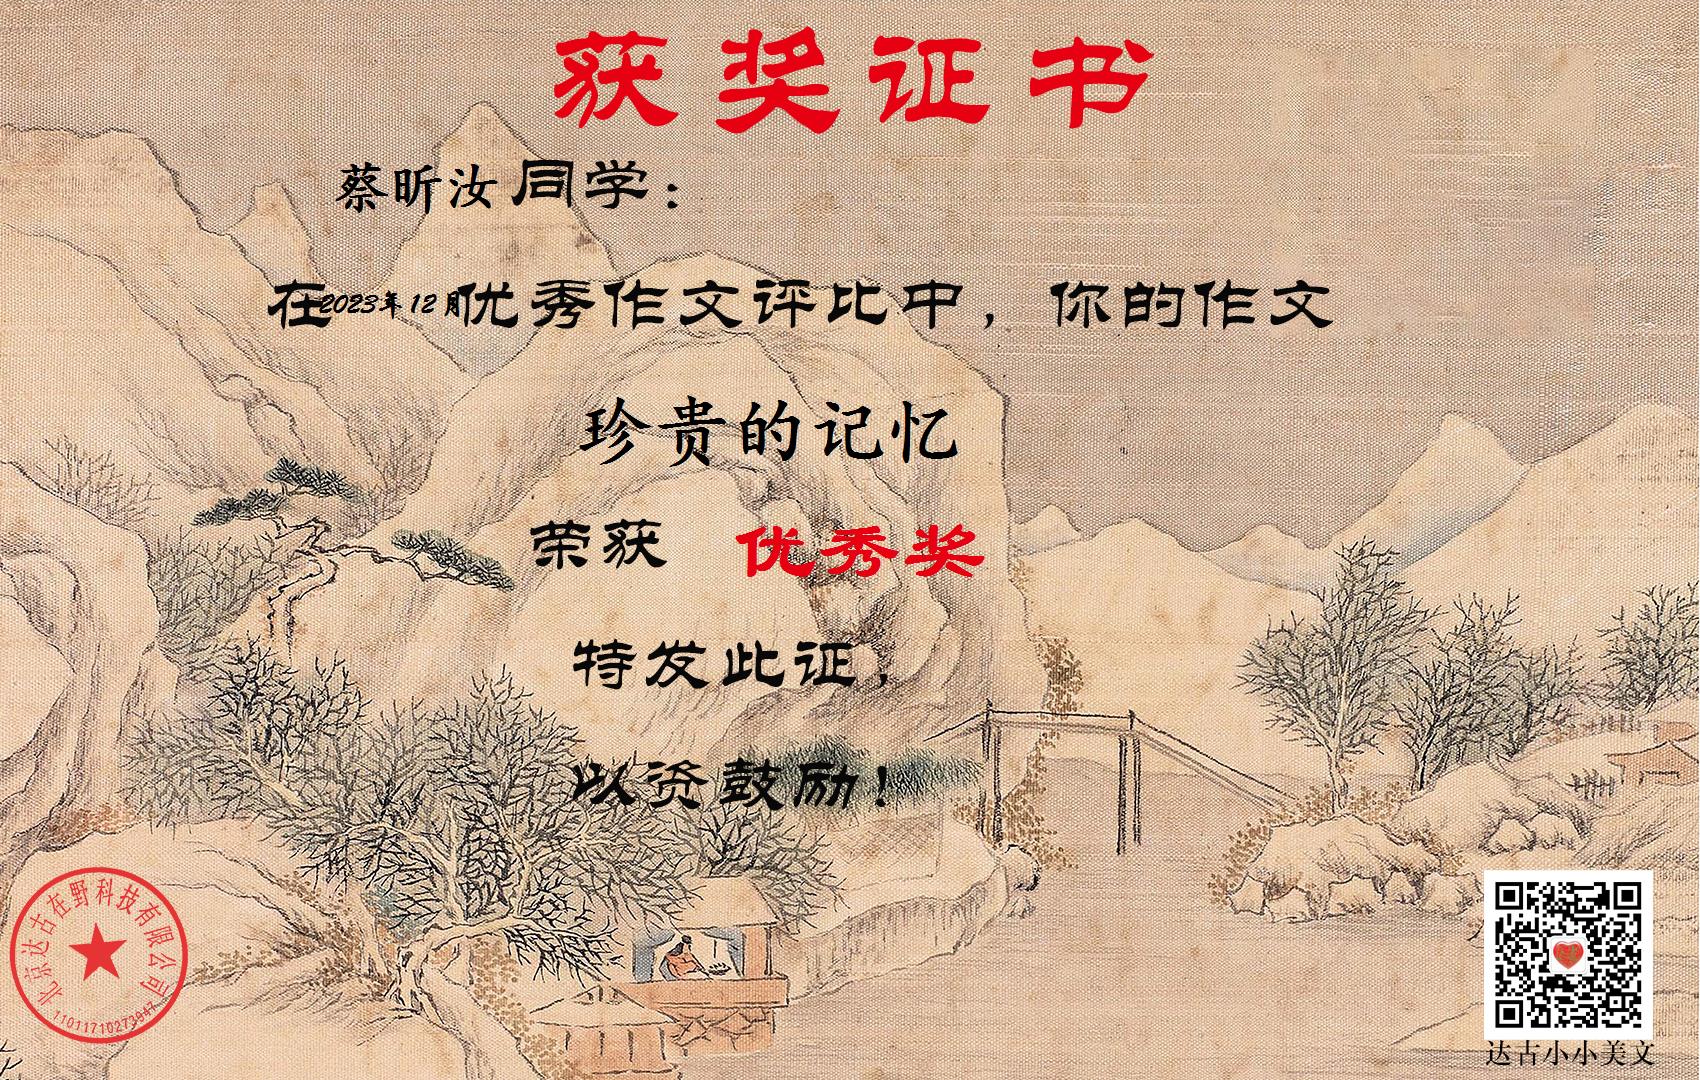 获奖证书
蔡昕汝同学：
在2023年12月优秀作文评比中，你的作文
珍贵的记忆
荣获 优秀奖
特发此证，
以资鼓励！
北京达古在野科技有限公司
11011710273947
达古小小美文